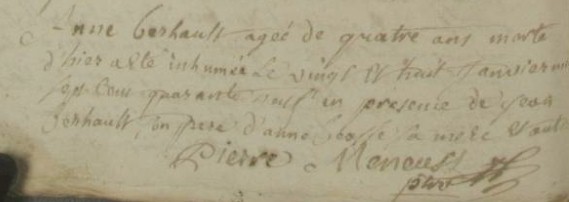 Anne Gerhault ageé de quatre ans morte
d'hier a eté inhumée Le vingt et huit Janvier mil
sept Cens quarante neuf en presence de jean
Gerhault son pere d'anne sa mere Et aut
Pierre
ptre